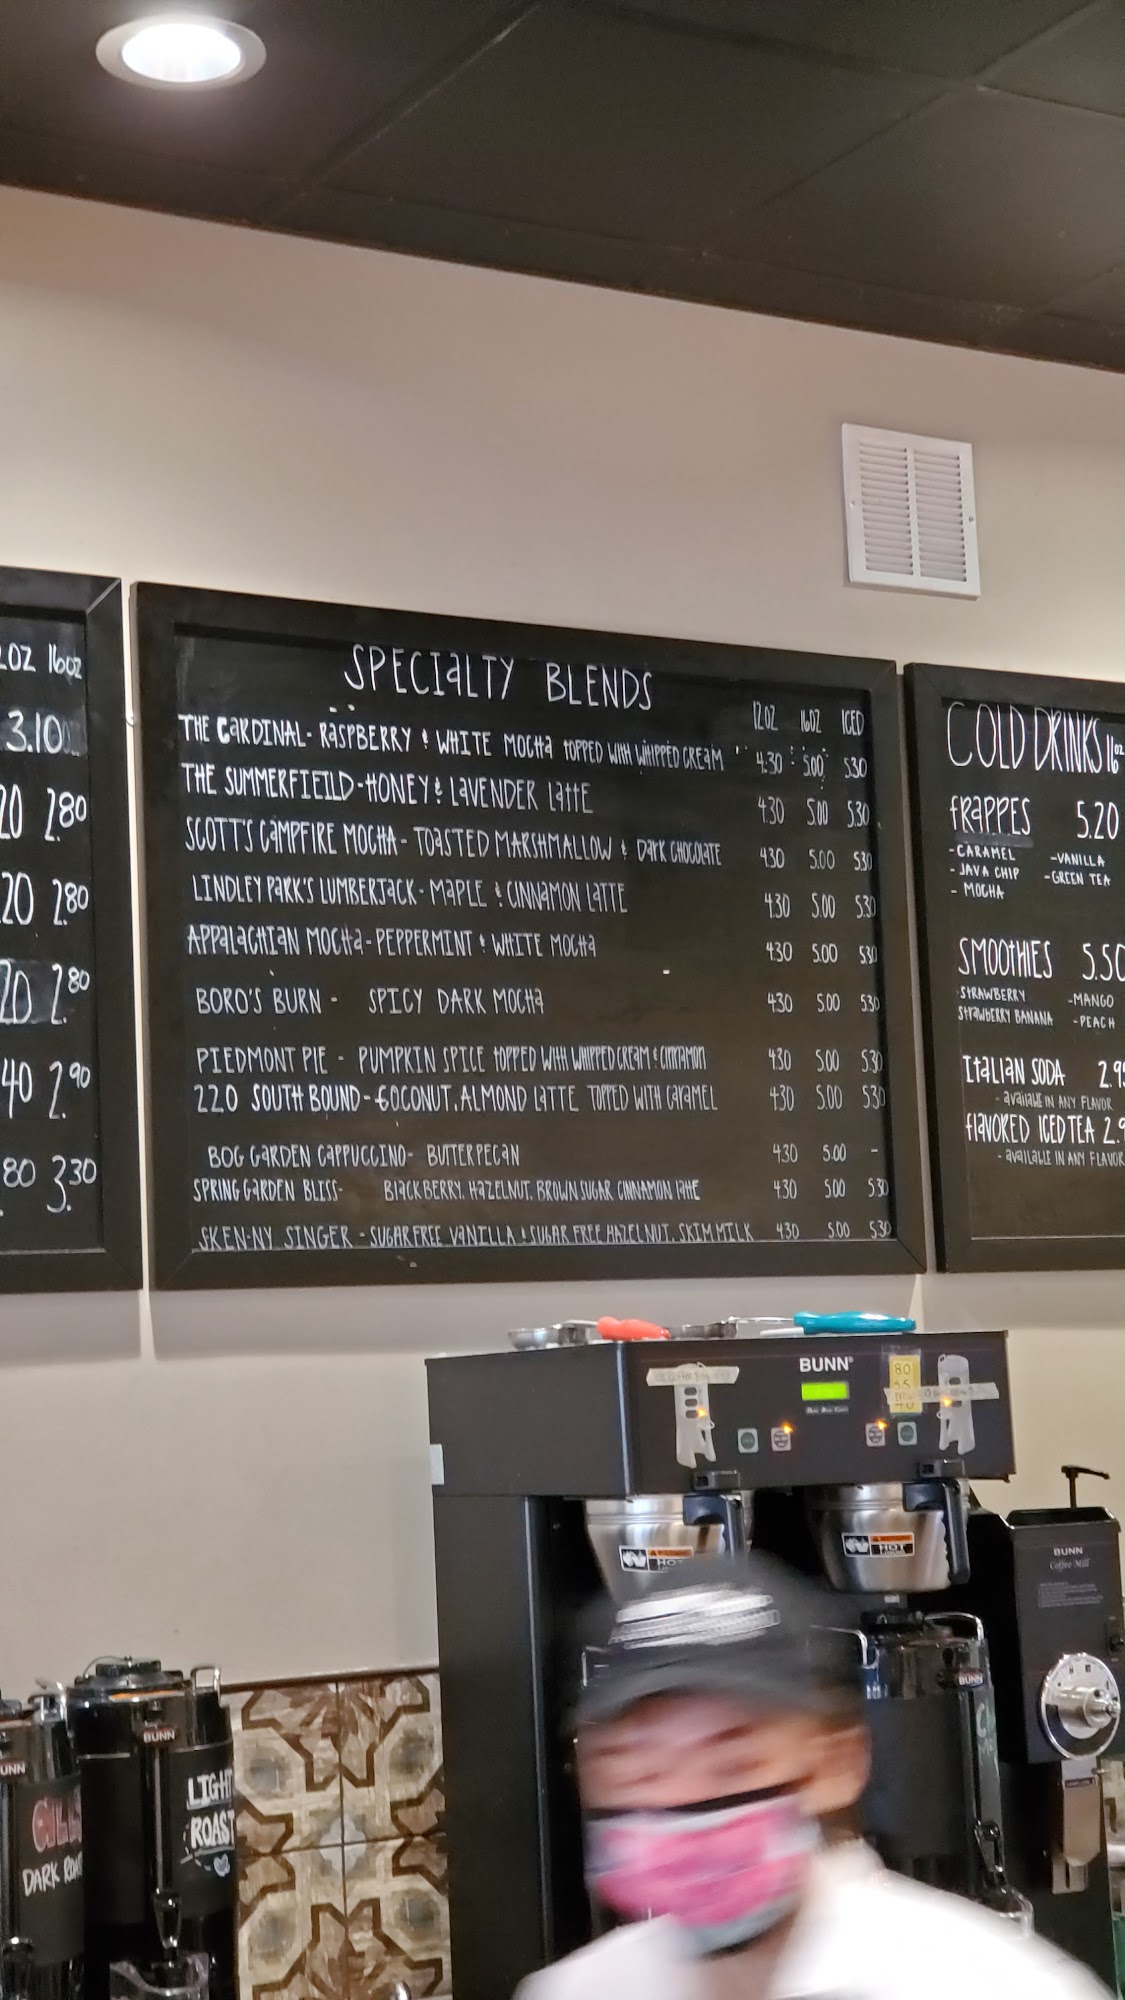 16oz
3.10
20 2.80
20 2.80
20 2.80
40 2.90
80 3.30
SPECIALTY BLENDS
12OZ 16OZ ICED
THE CARDINAL- RASPBERRY & WHITE MOCHA TOPPED WITH WHIPPED CREAM 4.30 5.00 530
THE SUMMERFIEILD-HONEY & LAVENDER LATTE 430 5.00 5.30
SCOTT'S CAMPFIRE MOCHA- TOASTED MARSHMALLOW & DARK CHOCOLATE 430 5.00 530
LINDLEY PARK'S LUMBERJACK- MAPLE & CINNAMON LATTE 430 5.00 530
APPALACHIAN MOCHA-PEPPERMINT & WHITE MOCHA 430 5.00 530
BORO'S BURN - SPICY DARK MOCHA 430 5.00 530
PIEDMONT PIE - PUMPKIN SPICE TOPPED WITH WHIPPED CREAM & CINNAMON 430 5.00 530
220 SOUTH BOUND- COCONUT, ALMOND LATTE TOPPED WITH CARAMEL 430 5.00 530
BOG GARDEN CAPPUCCINO- BUTTERPECAN 430 5.00 -
SPRING GARDEN BLISS- BLACKBERRY, HAZELNUT, BROWN SUGAR CINNAMON LATTE 430 5.00 530
SKEN-NY SINGER - SUGARFREE VANILLA & SUGAR FREE HAZELNUT, SKIM MILK 430 5.00 530
COLD DRINKS 16oz
FRAPPES 5.20
-CARAMEL -VANILLA
- JAVA CHIP -GREEN TEA
- MOCHA
SMOOTHIES 5.50
-STRAWBERRY -MANGO
STRAWBERRY BANANA -PEACH
ITALIAN SODA 2.95
- AVAILABLE IN ANY FLAVOR
FLAVORED ICED TEA 2.9
- AVAILABLE IN ANY FLAVOR
BUNN
80
HOT
HOT
BUNN
Coffee Mill
BUNN
BUNN
UNN
LIGHT
ROAST
DARK ROAST